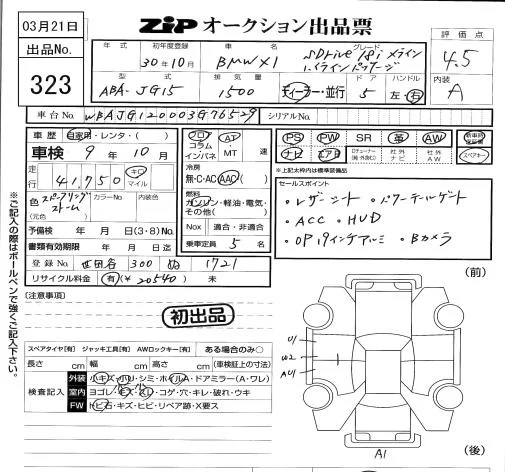 03月21日
ZiP オークション出品票
出品No.
323
年式 初年度登録 車名 グレード
30年10月 BMW X1 sDrive 18i xライン
ハイラインパッケージ
型式 排気量 ドア ハンドル
ABA-JG15 1500 ディーラー・並行 5 左・右
評価点
4.5
内装
A
車台No. WBAJG120003G76529 シリアルNo.
車歴 自家用・レンタ・( )
車検 9年 10月
走行 41,750 キロ マイル
色 (元色) カラーNo. 内装色
予備検 年 月 日(3・8)No.
書類有効期限 年 月 日
登録No. 世田谷 300 ぬ 1721
リサイクル料金 有(¥20540) 未
フロア コラム インパネ AT・MT 速
冷房 無・C・AC・AAC
燃料 ガソリン・軽油・電気・その他( )
Nox 適合・非適合
乗車定員 5名
PS PW SR 革 AW
ナビ エアB 社外ナビ 社外AW スペアキー
*上記太枠内は標準装備品
セールスポイント
・レザーシート ・パワーテールゲート
・ACC ・HUD
・OP19インチアルミ ・Bカメラ
※ご記入の際はボールペンで強くご記入下さい。
(注意事項)
初出品
スペアタイヤ[有] ジャッキ工具[有] AWロックキー[有] ある場合のみ○
長さ cm 幅 cm 高さ cm (車検証上の寸法)
検査記入
外装 小キズ・小凹・シミ・ホイルA・ドアミラー(A・ワレ)
室内 ヨゴレ・キズ・スレ・コゲ・穴・キレ・破れ・ウキ
FW トビ石・キズ・ヒビ・リペア跡・X要ス
(前)
U1
W2
AU1
A1
(後)